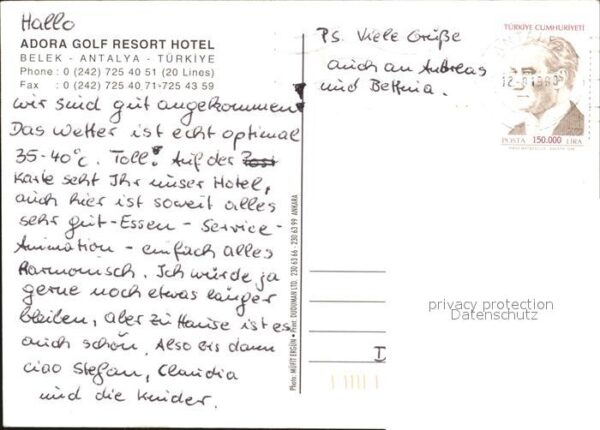 Hallo
ADORA GOLF RESORT HOTEL
BELEK - ANTALYA - TÜRKİYE
Phone : 0 (242) 725 40 51 (20 Lines)
Fax : 0 (242) 725 40 71-725 43 59
wir sind gut angekommen.
Das Wetter ist echt optimal
35-40°C. Toll! Auf der Post
Karte seht Ihr unser Hotel,
auch hier ist soweit alles
sehr gut-Essen - Service-
Animation - einfach alles
Harmonisch. Ich würde ja
gerne noch etwas länger
bleiben, aber zu Hause ist es
auch schön. Also bis dann
ciao Stefan, Claudia
und die Kinder.
Photo: MÜFİT ERGÜN • Print: DUDUMAN LTD. 230 63 66 - 230 63 99 ANKARA
PS. Viele Grüße
auch an Andreas
und Bettina.
TÜRKİYE CUMHURİYETİ
POSTA 150.000 LİRA
privacy protection
Datenschutz